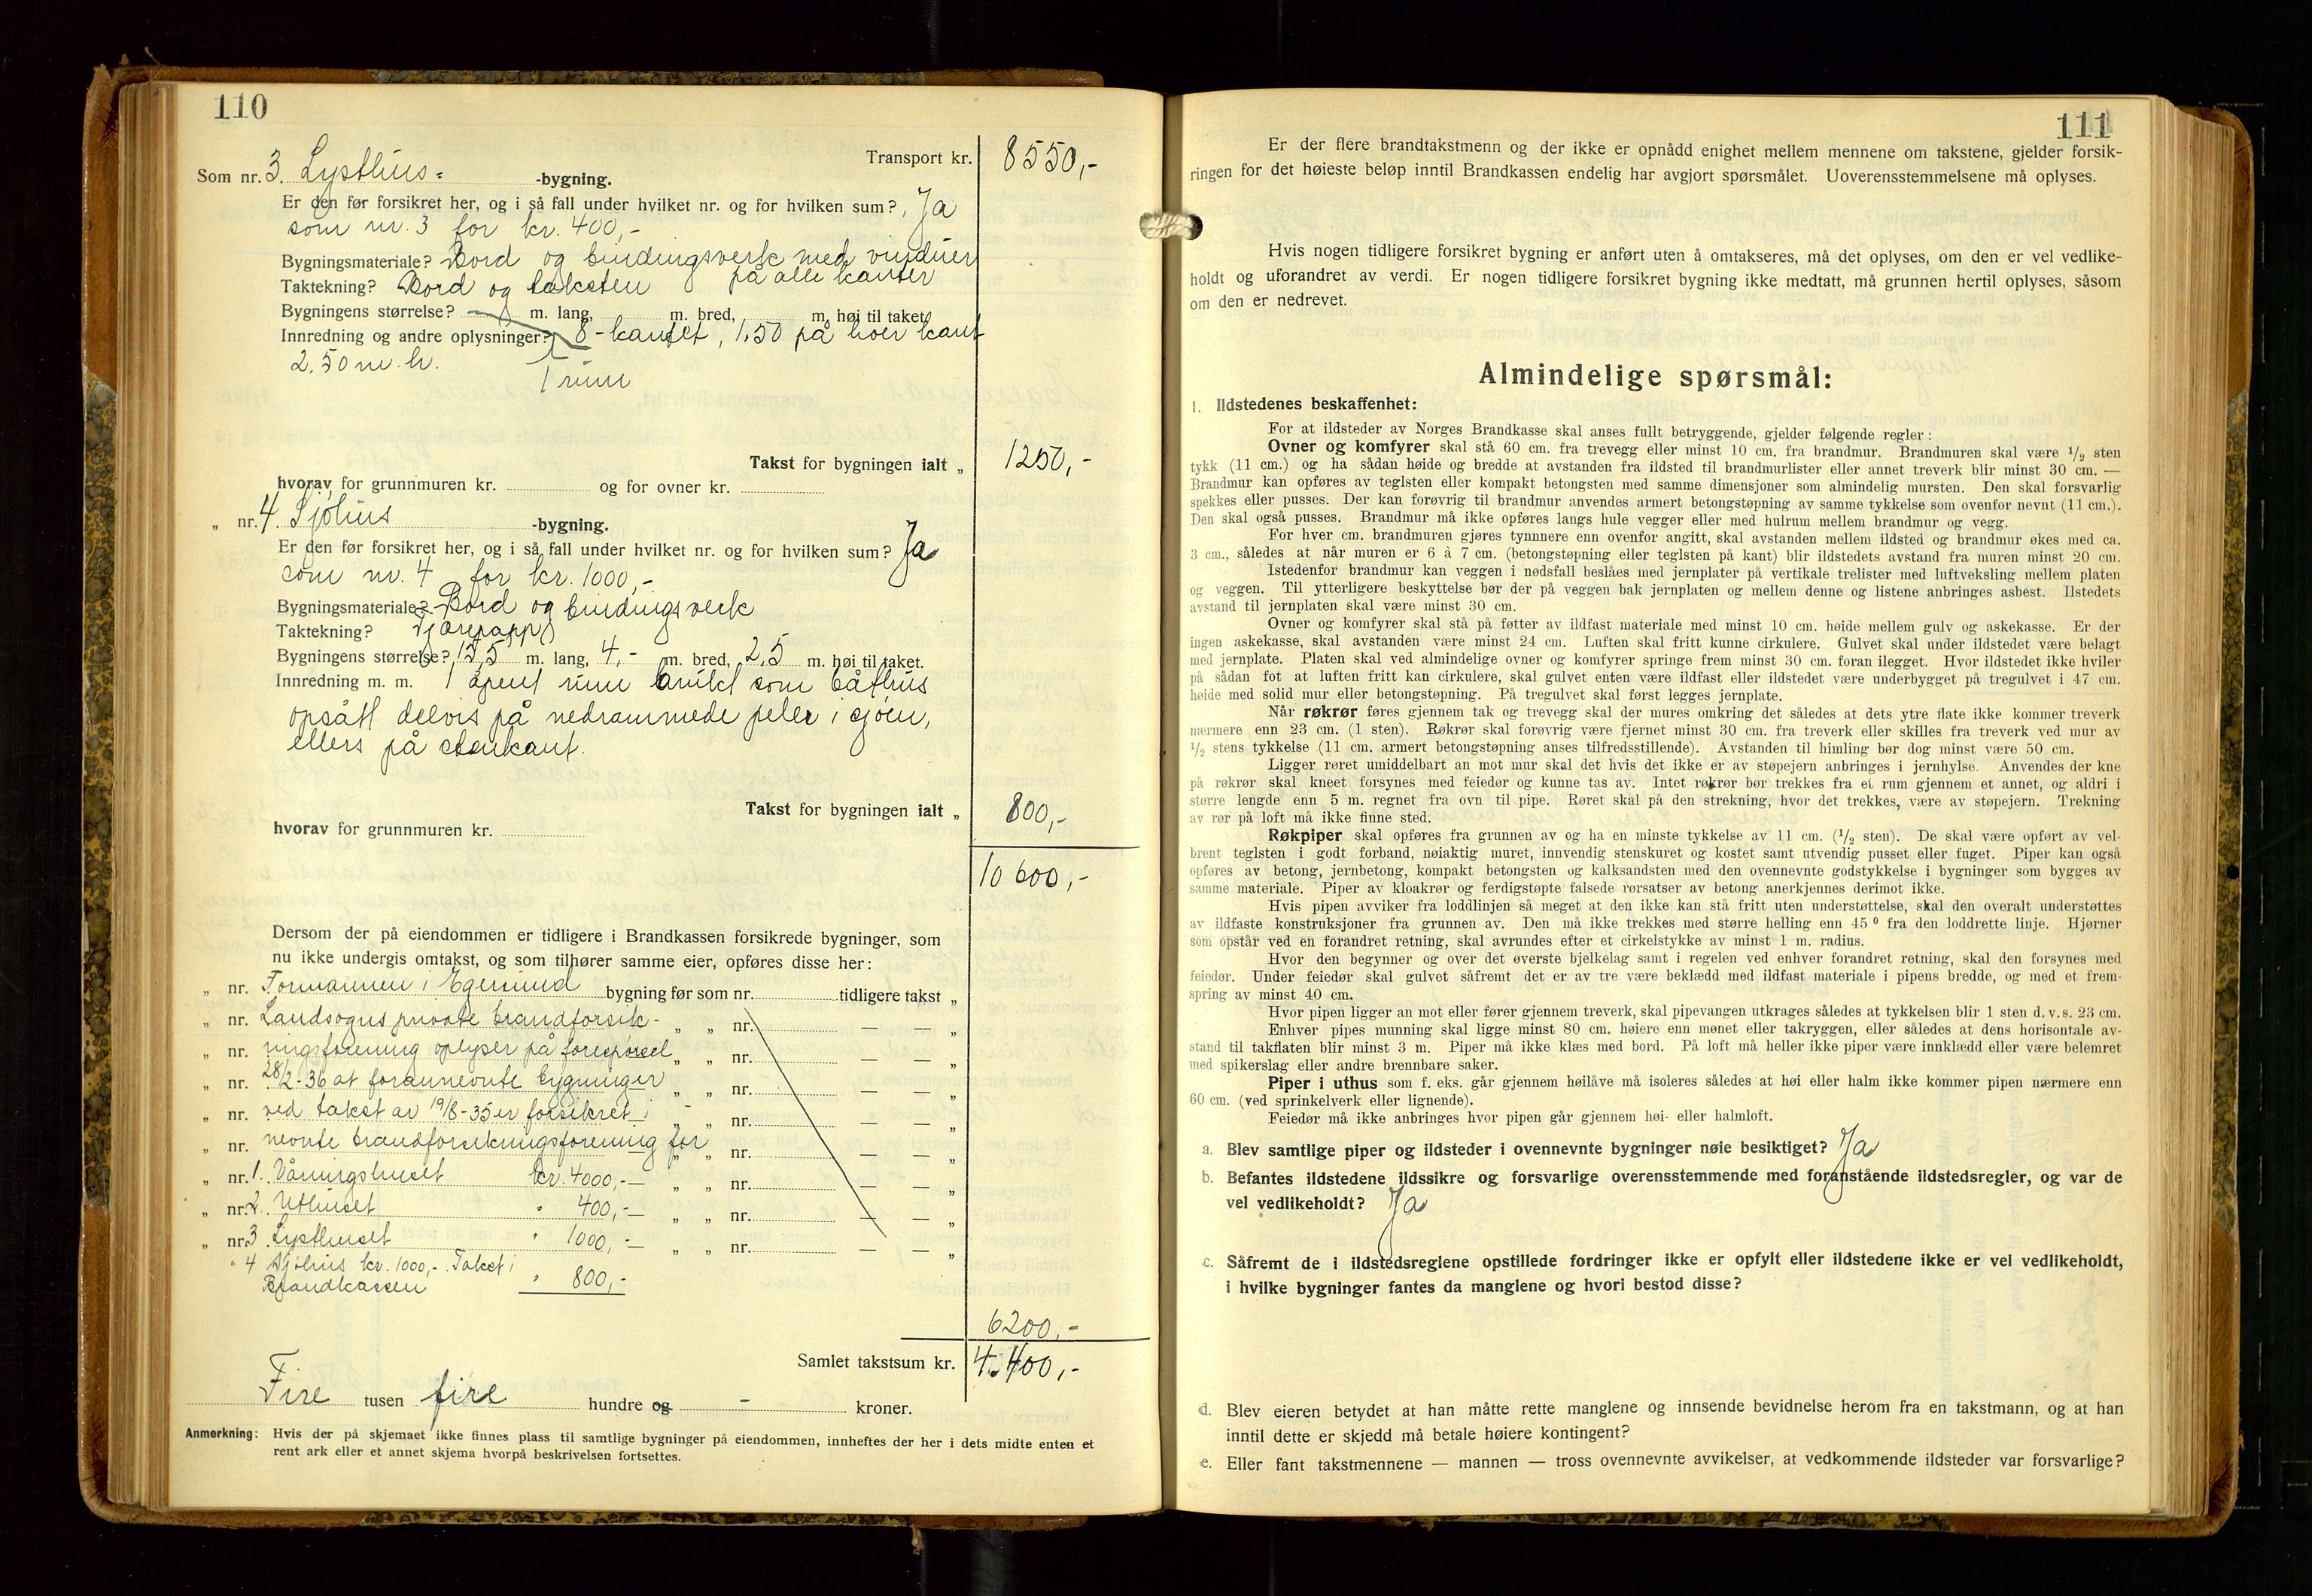 110
Transport kr. 8550,-
Som nr. 3. Lysthus= -bygning.
Er den før forsikret her, og i så fall under hvilket nr. og for hvilken sum? Ja
som nr. 3 for kr. 400,-
Bygningsmateriale? Bord og bindingsverk med vinduer
på alle kanter
Taktekning? Bord og taksten
Bygningens størrelse? m. lang, m. bred, m. høi til taket.
Innredning og andre oplysninger? 8-kantet, 1,50 på hver kant
2.50 m. h. 1 rum
Takst for bygningen ialt „ 1250,-
hvorav for grunnmuren kr. og for ovner kr.
„ nr. 4. Sjøhus -bygning.
Er den før forsikret her, og i så fall under hvilket nr. og for hvilken sum? Ja
som nr. 4 for kr. 1000,-
Bygningsmateriale? Bord og bindingsverk
Taktekning? Tjærepapp
Bygningens størrelse? 13,5 m. lang, 4,- m. bred, 2,5 m. høi til taket.
Innredning m. m. 1 åpent rum brukt som båthus
opsått delvis på nedrammede peler i sjøen,
ellers på stenkant.
Takst for bygningen ialt „ 800,-
hvorav for grunnmuren kr.
10 600,-
Dersom der på eiendommen er tidligere i Brandkassen forsikrede bygninger, som
nu ikke undergis omtakst, og som tilhører samme eier, opføres disse her:
„ nr. Formannen i Egersund bygning før som nr. tidligere takst „
„ nr. Landsogns private brandforsik- „ „ nr. — — „
„ nr. ringsforening oplyser på forespørsel „ „ nr. — — „
„ nr. 28/2-36 at forannevnte bygninger „ „ nr. — — „
„ nr. ved takst av 19/8-35 er forsikret i „ „ nr. — — „
„ nr. nevnte brandforsikringsforening for „ „ nr. — — „
„ nr. 1. Våningshuset kr. 4000,- „ „ nr. — — „
„ nr. 2. Uthuset „ 400,- „ „ nr. — — „
„ nr. 3 Lysthuset „ 1000,- „ „ nr. — — „
„ 4 Sjøhus kr. 1000,- Takst i
Brandkassen „ 800,-
6200,-
Samlet takstsum kr. 4.400,-
Fire tusen fire hundre og - kroner.
Anmerkning: Hvis der på skjemaet ikke finnes plass til samtlige bygninger på eiendommen, innheftes der her i dets midte enten et
rent ark eller et annet skjema hvorpå beskrivelsen fortsettes.
111
Er der flere brandtakstmenn og der ikke er opnådd enighet mellem mennene om takstene, gjelder forsik-
ringen for det høieste beløp inntil Brandkassen endelig har avgjort spørsmålet. Uoverensstemmelsene må oplyses.
Hvis nogen tidligere forsikret bygning er anført uten å omtakseres, må det oplyses, om den er vel vedlike-
holdt og uforandret av verdi. Er nogen tidligere forsikret bygning ikke medtatt, må grunnen hertil oplyses, såsom
om den er nedrevet.
Almindelige spørsmål:
1. Ildstedenes beskaffenhet:
For at ildsteder av Norges Brandkasse skal anses fullt betryggende, gjelder følgende regler:
Ovner og komfyrer skal stå 60 cm. fra trevegg eller minst 10 cm. fra brandmur. Brandmuren skal være 1/2 sten
tykk (11 cm.) og ha sådan høide og bredde at avstanden fra ildsted til brandmurlister eller annet treverk blir minst 30 cm. —
Brandmur kan opføres av teglsten eller kompakt betongsten med samme dimensjoner som almindelig mursten. Den skal forsvarlig
spekkes eller pusses. Der kan forøvrig til brandmur anvendes armert betongstøpning av samme tykkelse som ovenfor nevnt (11 cm.).
Den skal også pusses. Brandmur må ikke opføres langs hule vegger eller med hulrum mellem brandmur og vegg.
For hver cm. brandmuren gjøres tynnere enn ovenfor angitt, skal avstanden mellem ildsted og brandmur økes med ca.
3 cm., således at når muren er 6 à 7 cm. (betongstøpning eller teglsten på kant) blir ildstedets avstand fra muren minst 20 cm.
Istedenfor brandmur kan veggen i nødsfall beslåes med jernplater på vertikale trelister med luftveksling mellem platen
og veggen. Til ytterligere beskyttelse bør der på veggen bak jernplaten og mellem denne og listene anbringes asbest. Ilstedets
avstand til jernplaten skal være minst 30 cm.
Ovner og komfyrer skal stå på føtter av ildfast materiale med minst 10 cm. høide mellem gulv og askekasse. Er der
ingen askekasse, skal avstanden være minst 24 cm. Luften skal fritt kunne cirkulere. Gulvet skal under ildstedet være belagt
med jernplate. Platen skal ved almindelige ovner og komfyrer springe frem minst 30 cm. foran ilegget. Hvor ildstedet ikke hviler
på sådan fot at luften fritt kan cirkulere, skal gulvet enten være ildfast eller ildstedet være underbygget på tregulvet i 47 cm.
høide med solid mur eller betongstøpning. På tregulvet skal først legges jernplate.
Når røkrør føres gjennem tak og trevegg skal der mures omkring det således at dets ytre flate ikke kommer treverk
nærmere enn 23 cm. (1 sten). Røkrør skal forøvrig være fjernet minst 30 cm. fra treverk eller skilles fra treverk ved mur av
1/2 stens tykkelse (11 cm. armert betongstøpning anses tilfredsstillende). Avstanden til himling bør dog minst være 50 cm.
Ligger røret umiddelbart an mot mur skal det hvis det ikke er av støpejern anbringes i jernhylse. Anvendes der kne
på røkrør skal kneet forsynes med feiedør og kunne tas av. Intet røkrør bør trekkes fra et rum gjennem et annet, og aldri i
større lengde enn 5 m. regnet fra ovn til pipe. Røret skal på den strekning, hvor det trekkes, være av støpejern. Trekning
av rør på loft må ikke finne sted.
Røkpiper skal opføres fra grunnen av og ha en minste tykkelse av 11 cm. (1/2 sten). De skal være opført av vel-
brent teglsten i godt forband, nøiaktig muret, innvendig stenskuret og kostet samt utvendig pusset eller fuget. Piper kan også
opføres av betong, jernbetong, kompakt betongsten og kalksandsten med den ovennevnte godstykkelse i bygninger som bygges av
samme materiale. Piper av kloakrør og ferdigstøpte falsede rørsatser av betong anerkjennes derimot ikke.
Hvis pipen avviker fra loddlinjen så meget at den ikke kan stå fritt uten understøttelse, skal den overalt understøttes
av ildfaste konstruksjoner fra grunnen av. Den må ikke trekkes med større helling enn 45 º fra den loddrette linje. Hjørner
som opstår ved en forandret retning, skal avrundes efter et cirkelstykke av minst 1 m. radius.
Hvor den begynner og over det øverste bjelkelag samt i regelen ved enhver forandret retning, skal den forsynes med
feiedør. Under feiedør skal gulvet såfremt det er av tre være beklædd med ildfast materiale i pipens bredde, og med et frem-
spring av minst 40 cm.
Hvor pipen ligger an mot eller fører gjennem treverk, skal pipevangen utkrages således at tykkelsen blir 1 sten d. v. s. 23 cm.
Enhver pipes munning skal ligge minst 80 cm. høiere enn mønet eller takryggen, eller således at dens horisontale av-
stand til takflaten blir minst 3 m. Piper må ikke klæs med bord. På loft må heller ikke piper være innklædd eller være belemret
med spikerslag eller andre brennbare saker.
Piper i uthus som f. eks. går gjennem høilåve må isoleres således at høi eller halm ikke kommer pipen nærmere enn
60 cm. (ved sprinkelverk eller lignende).
Feiedør må ikke anbringes hvor pipen går gjennem høi- eller halmloft.
a. Blev samtlige piper og ildsteder i ovennevnte bygninger nøie besiktiget? Ja
b. Befantes ildstedene ildssikre og forsvarlige overensstemmende med foranstående ildstedsregler, og var de
vel vedlikeholdt? Ja
c. Såfremt de i ildstedsreglene opstillede fordringer ikke er opfylt eller ildstedene ikke er vel vedlikeholdt,
i hvilke bygninger fantes da manglene og hvori bestod disse?
d. Blev eieren betydet at han måtte rette manglene og innsende bevidnelse herom fra en takstmann, og at han
inntil dette er skjedd må betale høiere kontingent?
e. Eller fant takstmennene — mannen — tross ovennevnte avvikelser, at vedkommende ildsteder var forsvarlige?